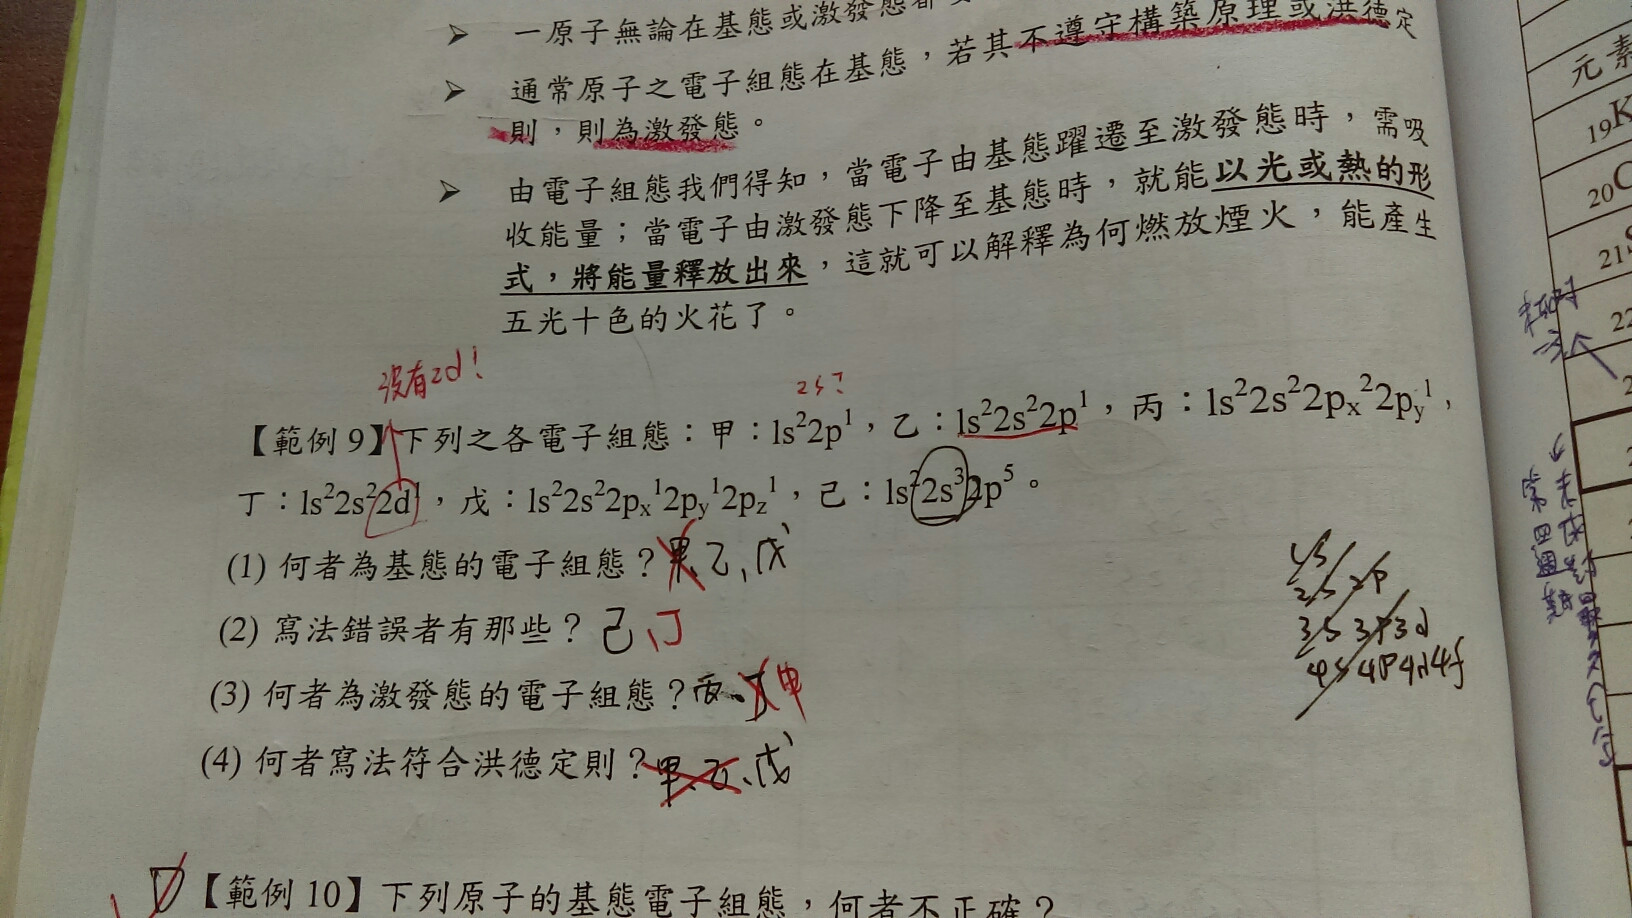 一原子無論在基態或激發態都
通常原子之電子組態在基態，若其不遵守構築原理或洪德定
則，則為激發態。
由電子組態我們得知，當電子由基態躍遷至激發態時，需吸
收能量；當電子由激發態下降至基態時，就能以光或熱的形
式，將能量釋放出來，這就可以解釋為何燃放煙火，能產生
五光十色的火花了。
沒有2d！
2s？
【範例 9】下列之各電子組態：甲：1s²2p¹，乙：1s²2s²2p¹，丙：1s²2s²2pₓ²2p_y¹，
丁：1s²2s²2d¹，戊：1s²2s²2pₓ¹2p_y¹2p_z¹，己：1s²2s³2p⁵。
(1) 何者為基態的電子組態？甲、乙、戊
(2) 寫法錯誤者有那些？己、丁
(3) 何者為激發態的電子組態？丙、丁甲
(4) 何者寫法符合洪德定則？甲、乙、戊
1s
2s 2p
3s 3p 3d
4s 4p 4d 4f
【範例 10】下列原子的基態電子組態，何者不正確？
元素
19K
20C
21S
22